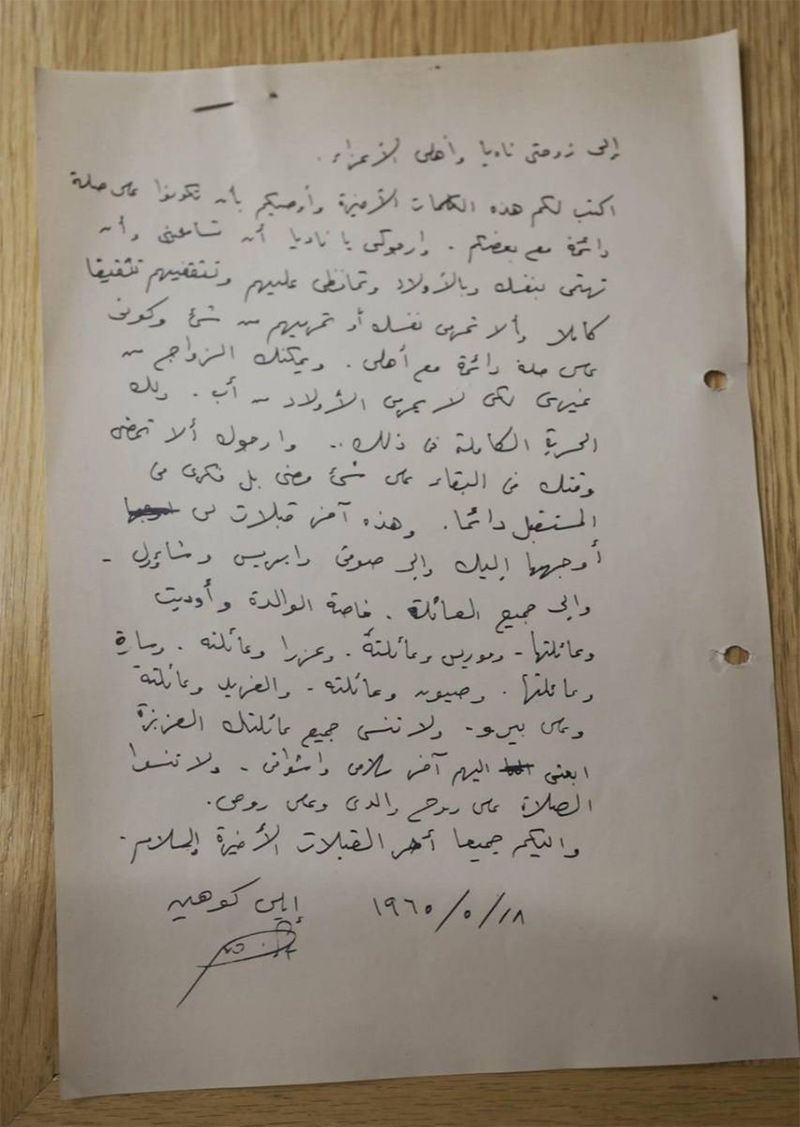 إلى زوجتي ناديا وأهلي الأعزاء.
اكتب لكم هذه الكلمات الأخيرة وأوصيكم بأن تكونوا على صلة
دائمة مع بعضكم. وارجوكي يا ناديا أن تسامحيني وأن
تهتمي بنفسك وبالأولاد وتحافظي عليهم وتثقفيهم تثقيفا
كاملا وألا تحرمي نفسك أو تحرميهم من شئ وكوني
على صلة دائمة مع أهلي. ويمكنك الزواج من
غيري لكي لا يحرمن الأولاد من أب. ولك
الحرية الكاملة في ذلك.. وارجوك ألا تمضي
وقتك في البكاء على شئ مضى بل فكري في
المستقبل دائما. وهذه آخر قبلات لي
أوجهها إليك وإلى صوفي وايريس وشاؤول -
وإلى جميع العائلة. خاصة الوالدة وأوديت
وعائلتها - وموريس وعائلته. وعزرا وعائلته. وسارة
وعائلتها. وصيون وعائلته - والفريد وعائلته
وعلى بيرو - ولا تنسي جميع عائلتك العزيزة
ابعثي اليهم آخر سلامي واشواقي - ولا تنسوا
الصلاة على روح والدي وعلى روحي.
واليكم جميعا أحر القبلات الأخيرة والسلام -
إيلي كوهين ١٩٦٥/٥/١٨